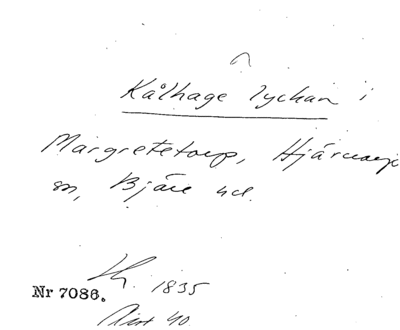 Kålhage lyckan i
Margretetorp, Hjärnarp
sn, Bjäre hd.
1835
Nr 7086.
40